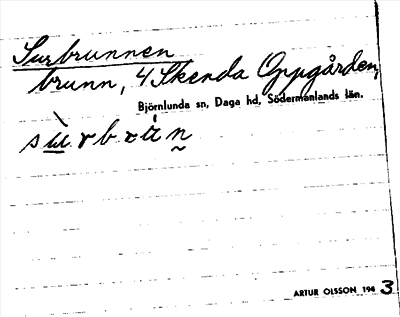 Surbrunnen
brunn, 4 Skenda Oppgården,
Björnlunda sn, Daga hd, Södermanlands län.
sùrbrún̰
ARTUR OLSSON 1943